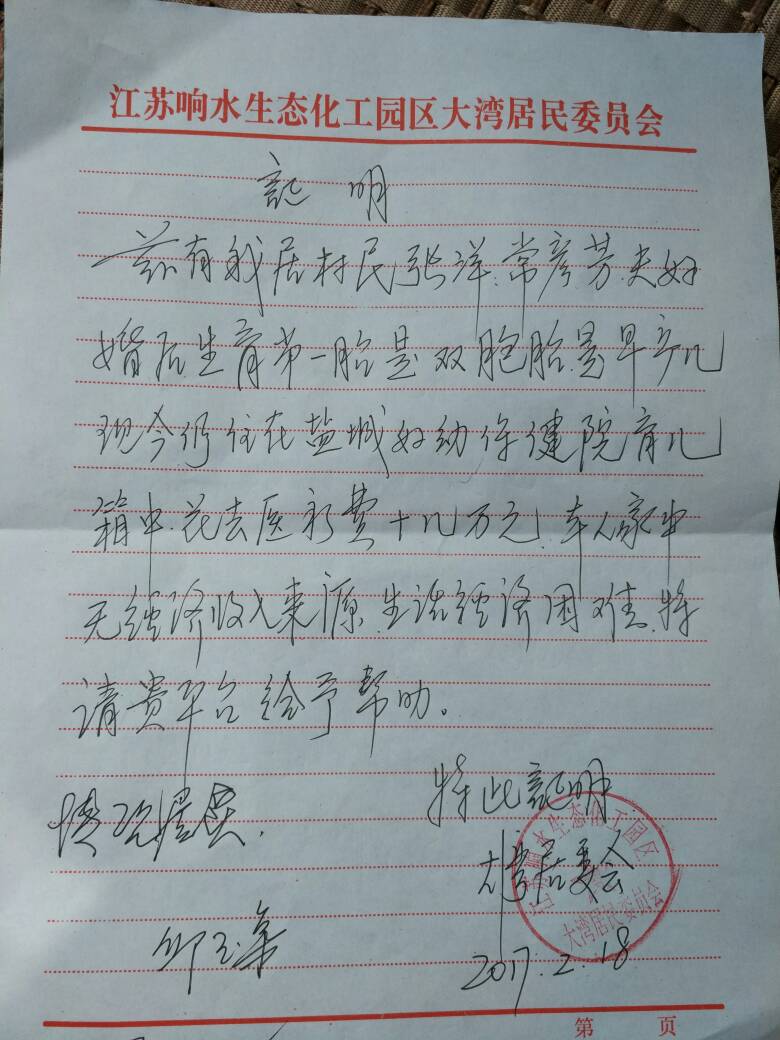 江苏响水生态化工园区大湾居民委员会
記明
兹有我居村民张洋、常彦芳夫妇
婚后生育第一胎是双胞胎,是早产儿
现今仍住在盐城妇幼保健院育儿
箱中,花去医疗费十几万元,本人家中
无经济收入来源,生活经济困难,特
请贵平台给予帮助。
特此記明
情况属实,
大湾居委会
2017.2.18
江苏响水生态化工园区
大湾居民委员会
第 页